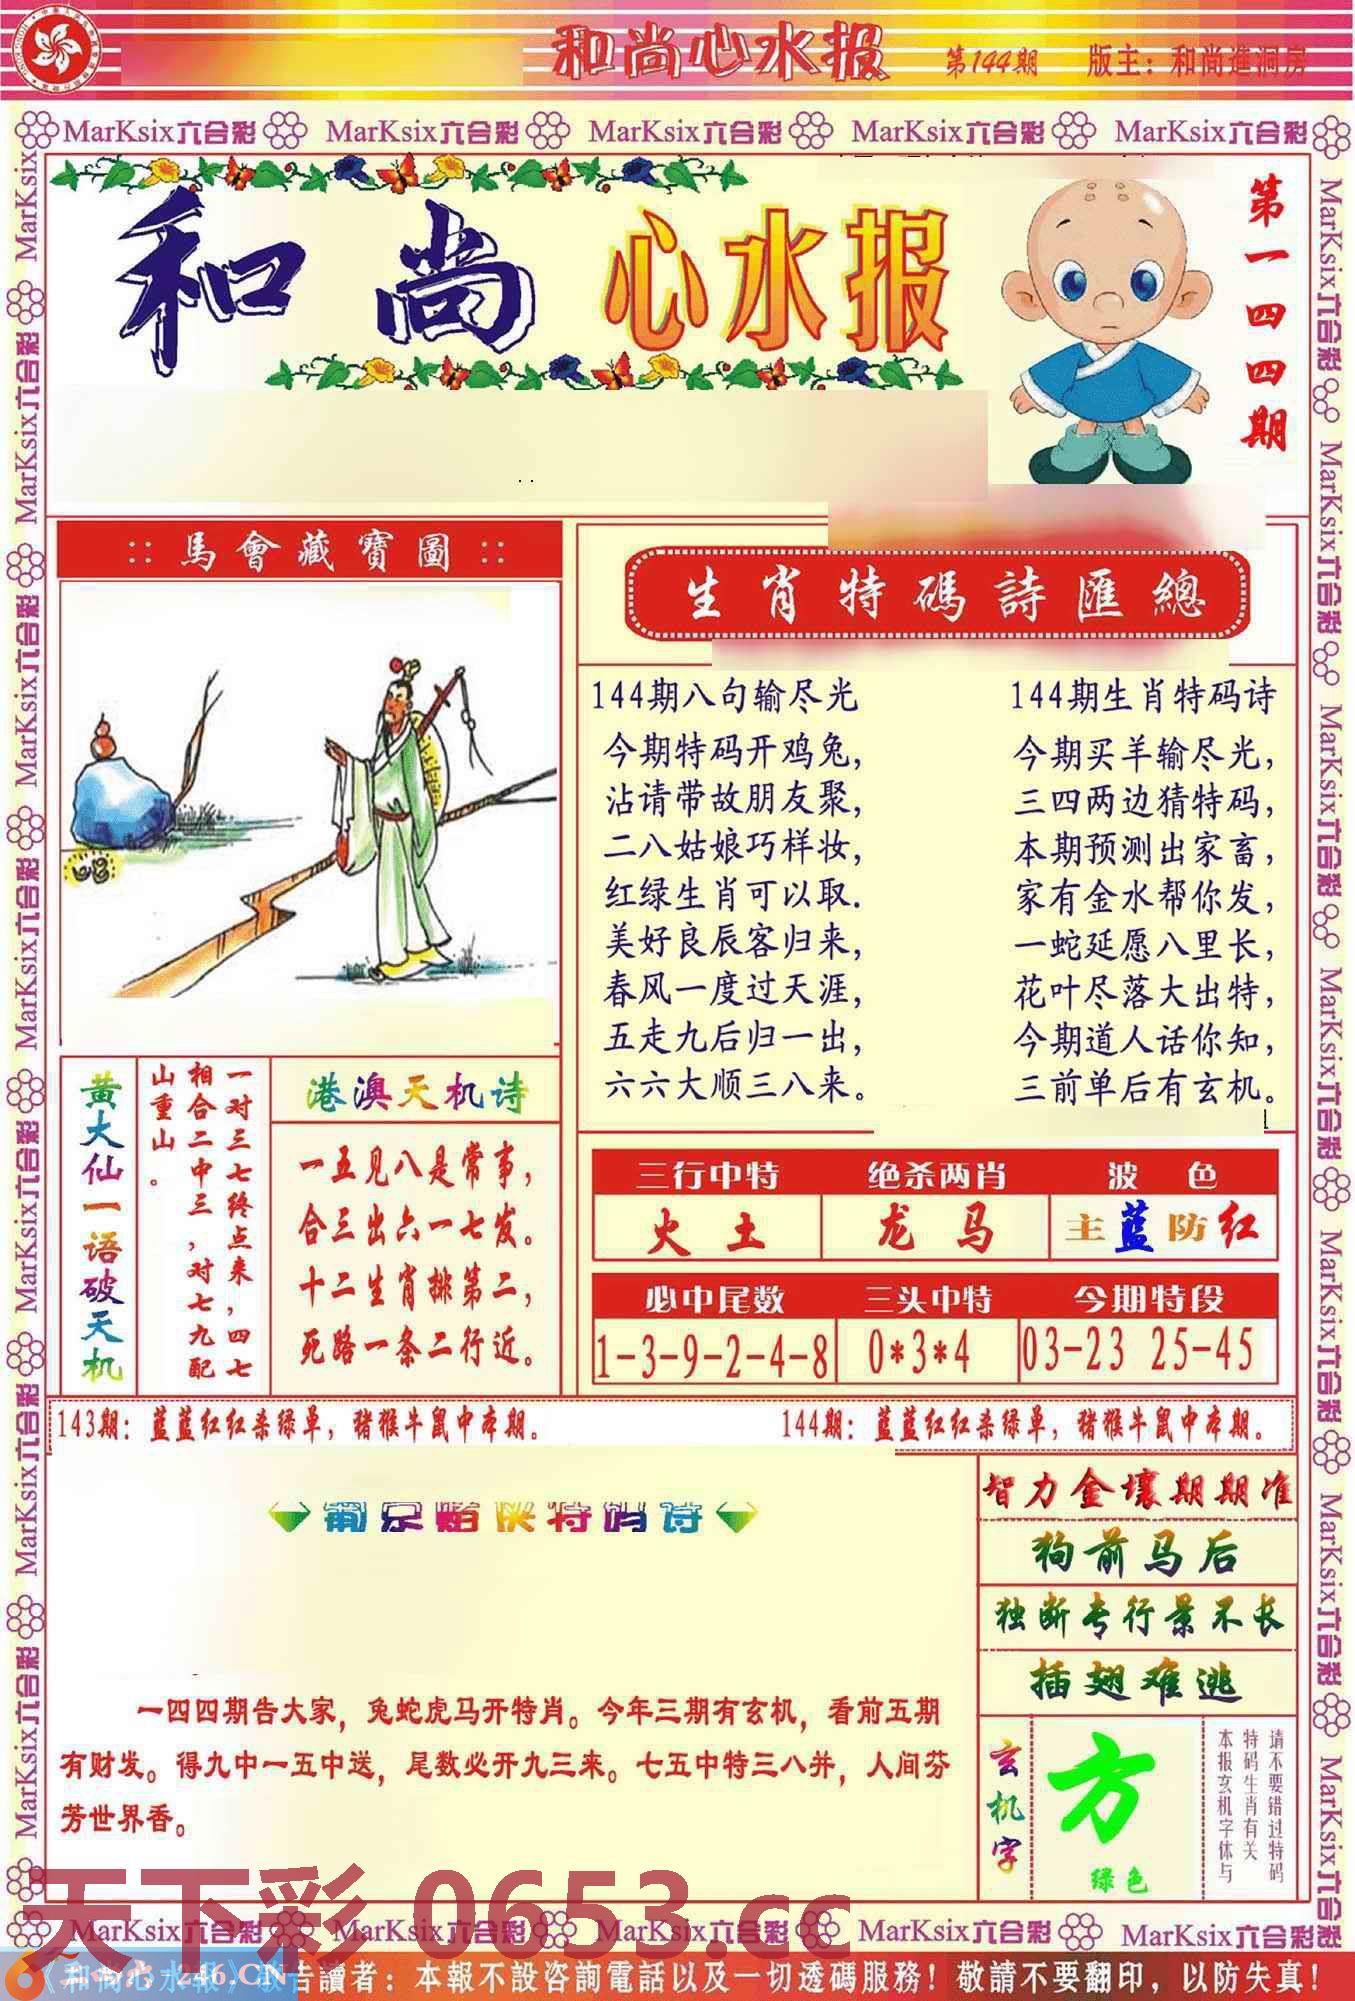 和尚心水报 第144期 版主：和尚進洞房
MarKsix六合彩 MarKsix六合彩 MarKsix六合彩 MarKsix六合彩 MarKsix六合彩
和尚心水报
第一四四期
::馬會藏寶圖::
黄大仙一语破天机
一对三七终点来，四七
相合二中三，对七九配
山重山。
港澳天机诗
一五见八是常事，
合三出六一七发。
十二生肖排第二，
死路一条二行近。
生肖特碼詩匯總
144期八句输尽光
今期特码开鸡兔，
沾请带故朋友聚，
二八姑娘巧样妆，
红绿生肖可以取.
美好良辰客归来，
春风一度过天涯，
五走九后归一出，
六六大顺三八来。
144期生肖特码诗
今期买羊输尽光，
三四两边猜特码，
本期预测出家畜，
家有金水帮你发，
一蛇延愿八里长，
花叶尽落大出特，
今期道人话你知，
三前单后有玄机。
三行中特 绝杀两肖 波色
火土 龙马 主蓝防红
必中尾数 三头中特 今期特段
1-3-9-2-4-8 0*3*4 03-23 25-45
143期：蓝蓝红红杀绿单，猪猴牛鼠中本期。 144期：蓝蓝红红杀绿单，猪猴牛鼠中本期。
一四四期告大家，兔蛇虎马开特肖。今年三期有玄机，看前五期
有财发。得九中一五中送，尾数必开九三来。七五中特三八并，人间芬
芳世界香。
智力金壤期期准
狗前马后
独断专行景不长
插翅难逃
玄机字
方
绿色
请不要错过特码
特码生肖有关
本报玄机字体与
天下彩 0653.cc
MarKsix六合彩 MarKsix六合彩 MarKsix六合彩 MarKsix六合彩 MarKsix六合彩
246.CN
《和尚心水报》敬告讀者：本報不設咨詢電話以及一切透碼服務！敬請不要翻印，以防失真！